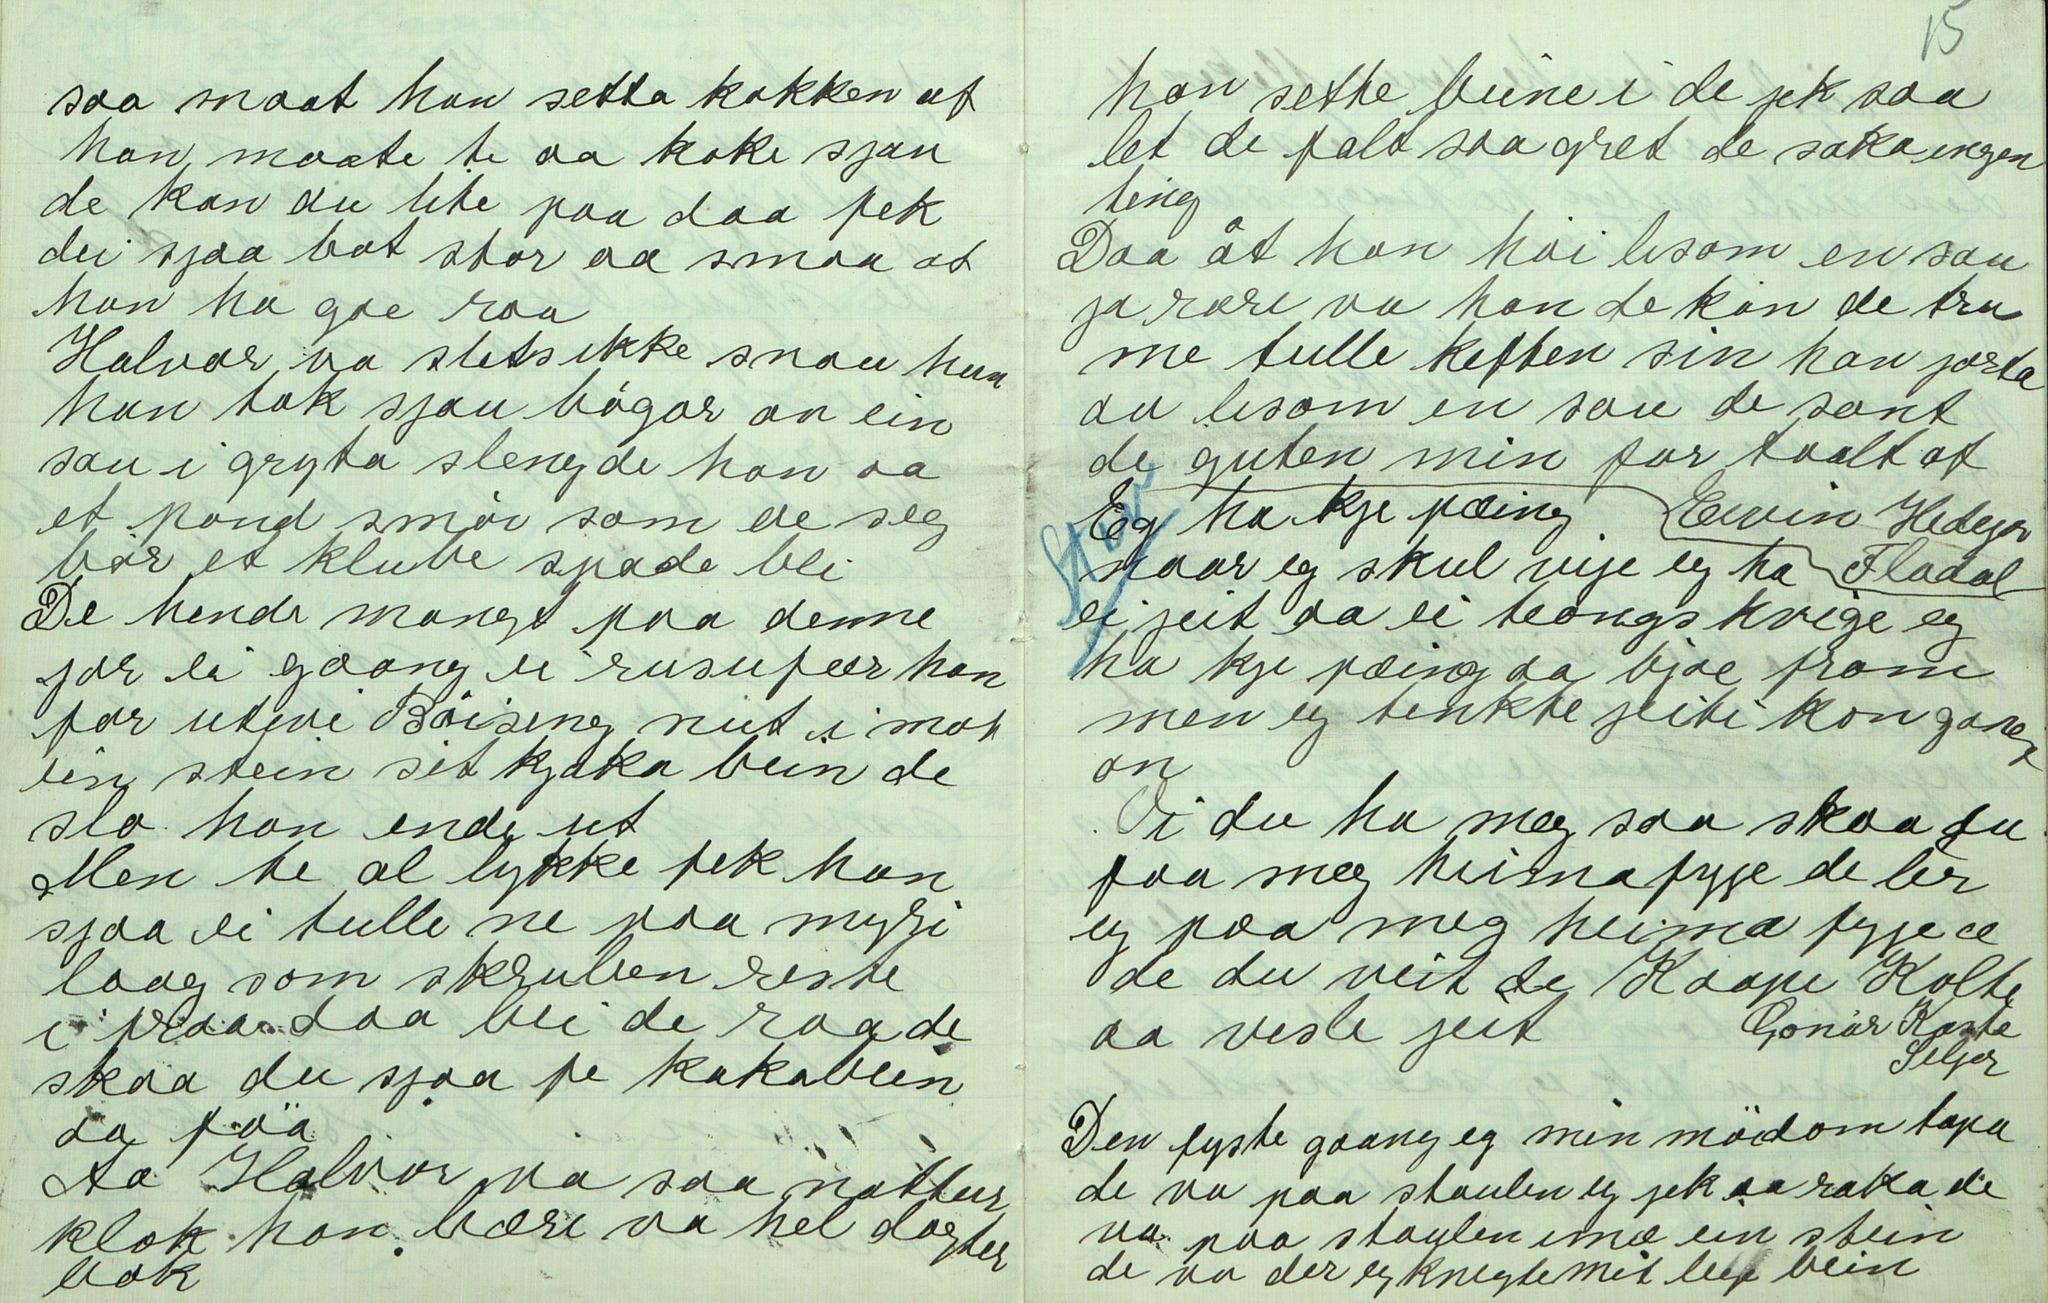 saa maat han setta kokken af
han maate te aa koke sjau
de kan du lite paa daa fek
dei sjaa baat stor aa smaa at
han ha goe raa
Halvor va sletsikke snau hun
han tok sjau bógar an ein
sau i gryta slengde han aa
et pond smör som de seg
bör et klube spade bli
De hende mangt paa denne
jor ei gaang ei rusufær han
for utfvi Böiseng nut i mot
ein stein sit kjaka bein de
slo han ende ut
Men te al lykke fek han
sjaa ei tulle ne paa myrji
laag som skruben reste
i fraa daa blei de raa de
skaa du sjaa fe kakabein
aa faa
Aa Halvor va saa nattur
klok han bære va hel dogter
bok
15
han sette beine i de gek saa
let de falt saa gret de saka ingen
ting
Daa åt han höi lisom en sau
ja rære va han de kan de tru
me tulle keften sin han jorta
au lisom en sau de sant
de guten min for taalt af
Eg ha kje pæing Ervin Hedejor
naar eg skul vije eg ha Flodal
ei jeit aa ei teongs kvige eg
ha kje pæing aa bjoe fram
men eg tenkte jeiti kon gange
an
Vi du ha meg saa skaa du
faa meg heimafyje de ber
eg paa meg heima fyje æ
de du veit de Kaape Kolte
aa vesle jeit Gonár Roste
Seljor
Den fyste gaang eg min mödom tapa
de va paa staulen eg gek aa raka de
va paa staulen imæ ein stein
de va der eg knegte mit leije bein